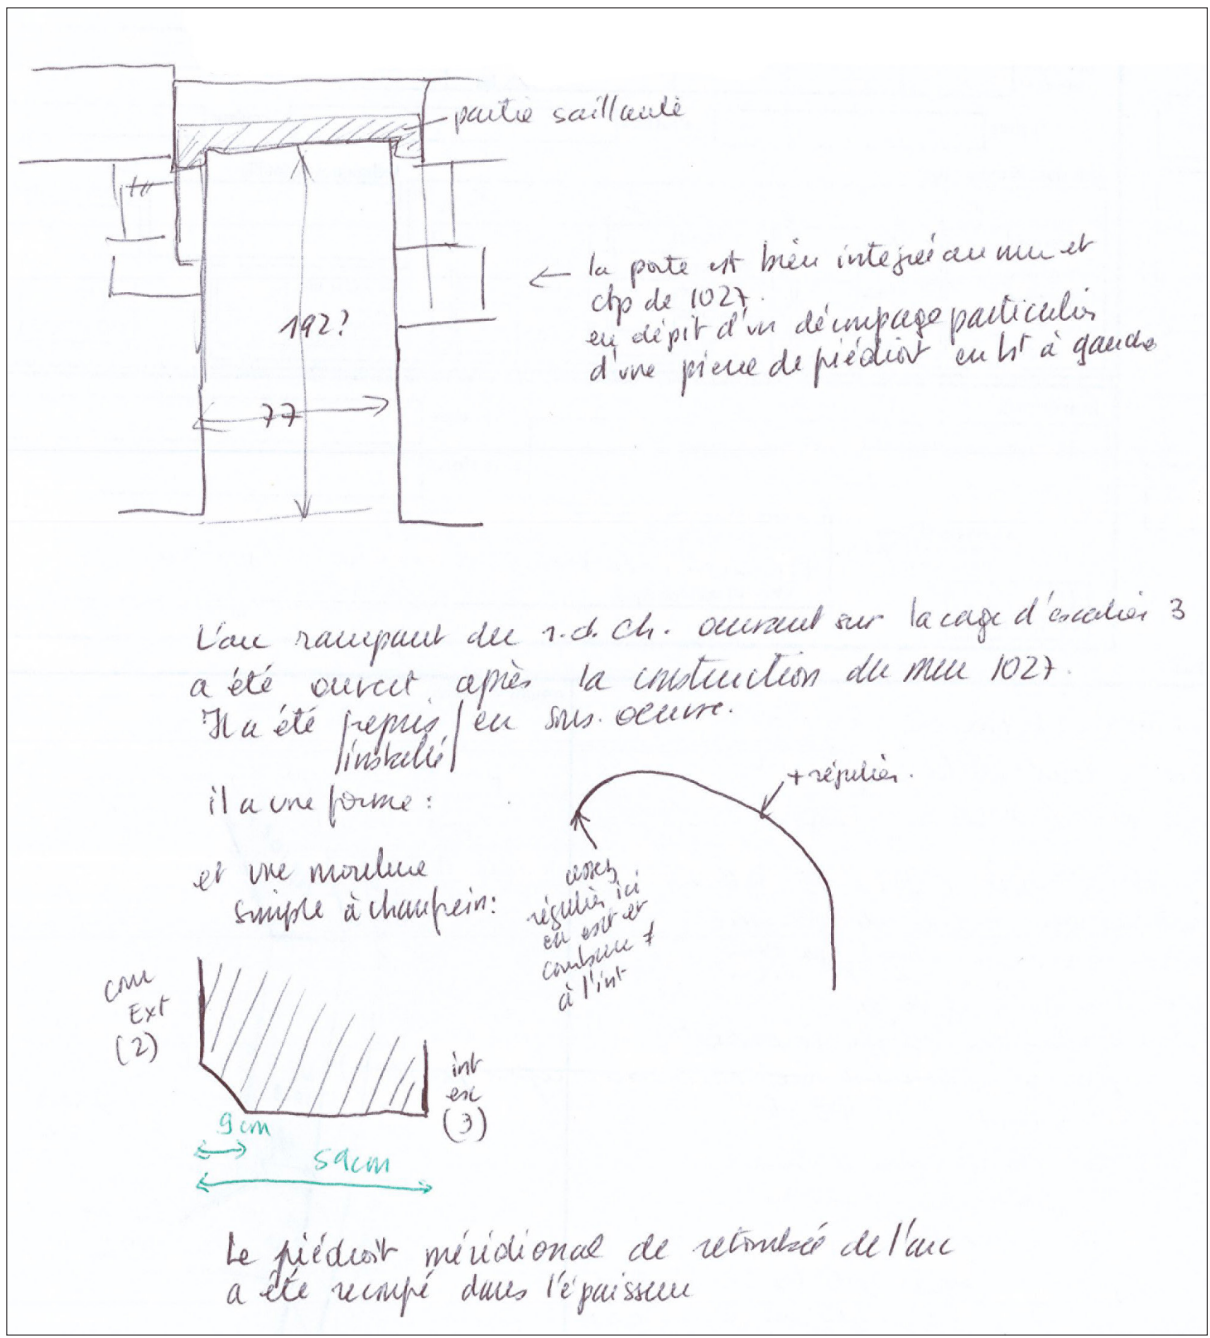 partie saillante
la porte est bien intégrée au mur et
ctp de 1027.
en dépit d'un découpage particulier
d'une pierre de piédroit en ht à gauche
192?
77
L'arc rampant du r.d.ch. ouvrant sur la cage d'escalier 3
a été ouvert après la construction du mur 1027.
Il a été repris en sous-oeuvre.
installé
il a une forme :
+ régulier.
et une moulure
simple à chanfrein :
assez
régulier ici
en ext et
à l'int
Ext
(2)
int
esc
(3)
9cm
59cm
Le piédroit méridional de retombée de l'arc
a été recoupé dans l'épaisseur